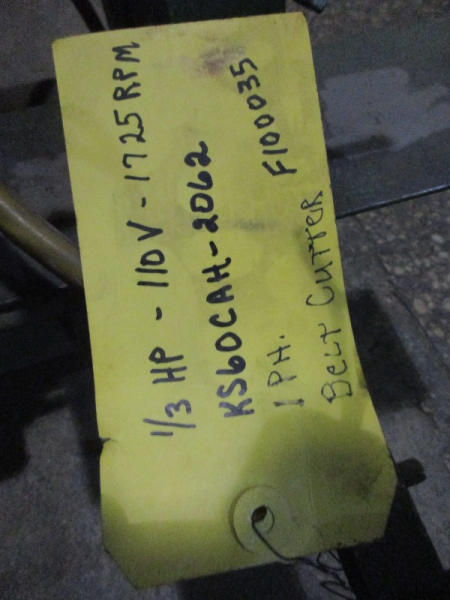 1/3 HP - 110V - 1725 RPM
KS60CAH-2062
1 PH. F100035
Belt Cutter